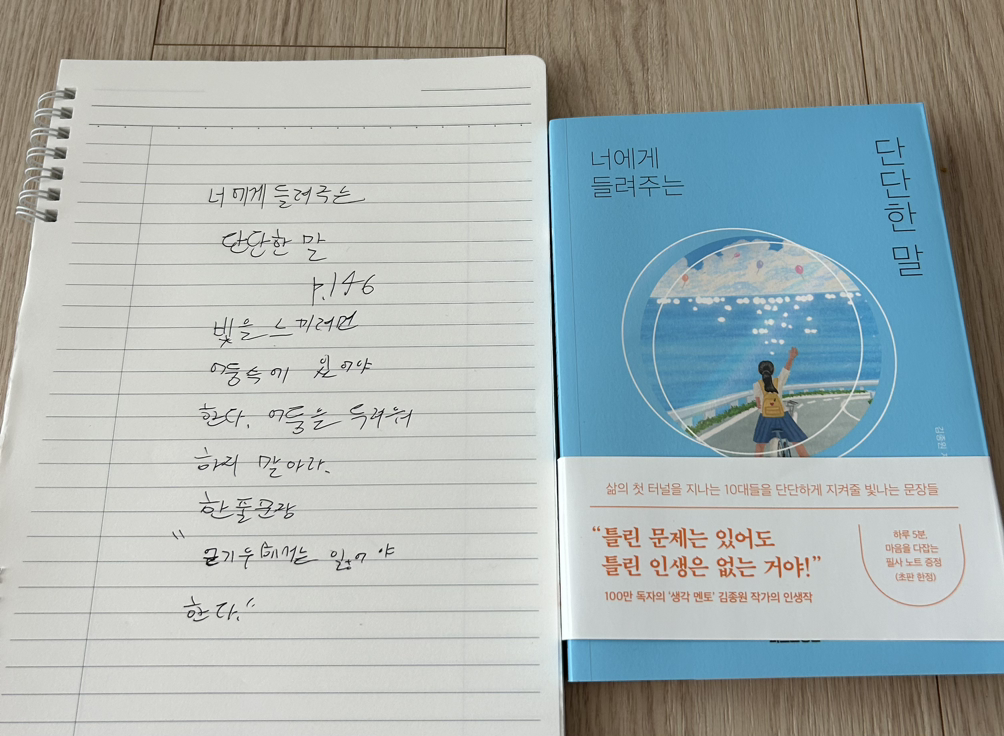 너에게 들려주는
단단한 말
p.146
빛을 느끼려면
어둠속에 있어야
한다. 어둠을 두려워
하지 말아라.
한풀
"
있어야
한다."
너에게
들려주는
단단한 말
김종원
삶의 첫 터널을 지나는 10대들을 단단하게 지켜줄 빛나는 문장들
"틀린 문제는 있어도
틀린 인생은 없는 거야!"
100만 독자의 '생각 멘토' 김종원 작가의 인생작
하루 5분,
마음을 다잡는
필사 노트 증정
(초판 한정)